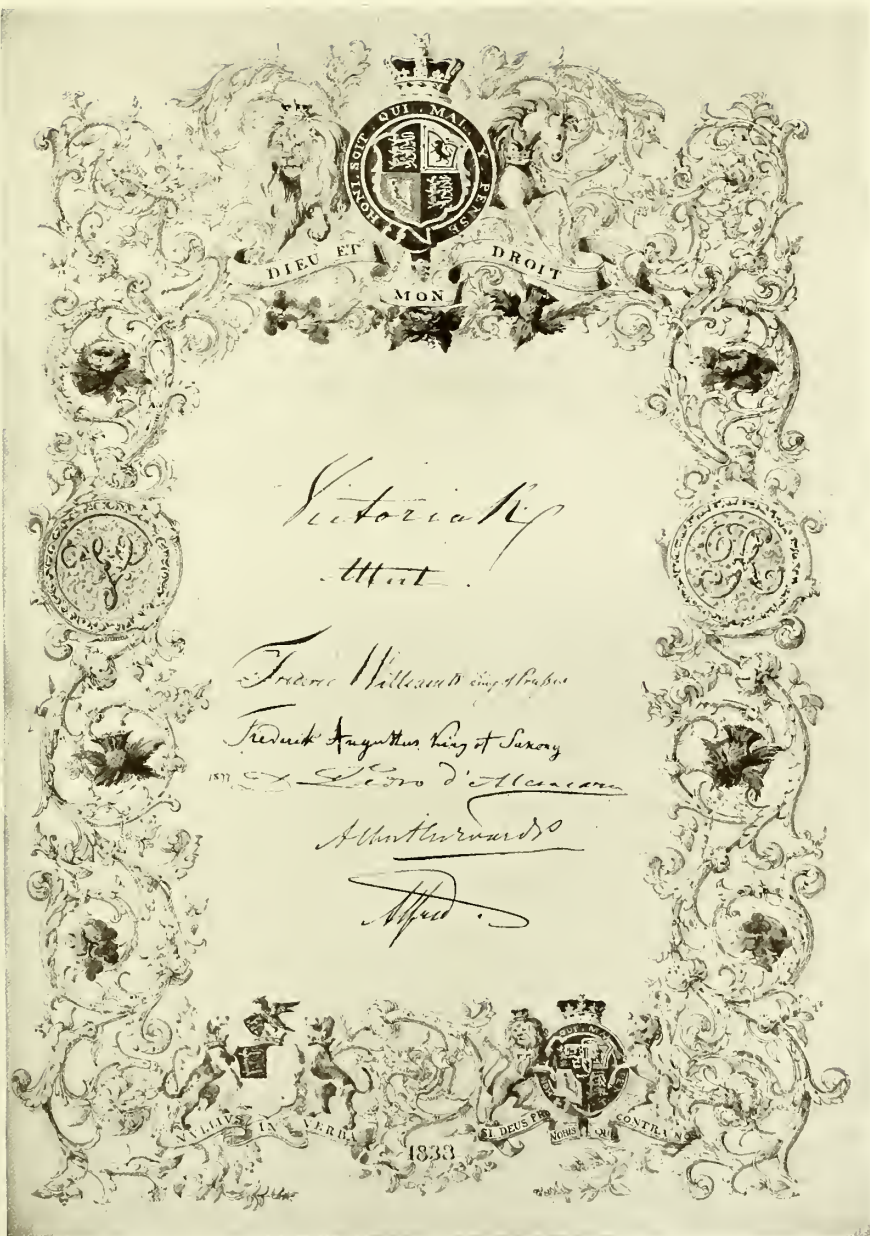 HONI . SOIT . QUI . MAL . Y . PENSE
DIEU ET MON DROIT
Victoria R
Albert .
V
R
Frederic William King of Prussia
Frederik Augustus King of Saxony
1877 D. Pedro d'Alcantara
Albert Edward
Alfred .
QUI MA
NVLLIVS IN VERBA
SI DEUS PRO NOBIS QUI CONTRA NOS
1838